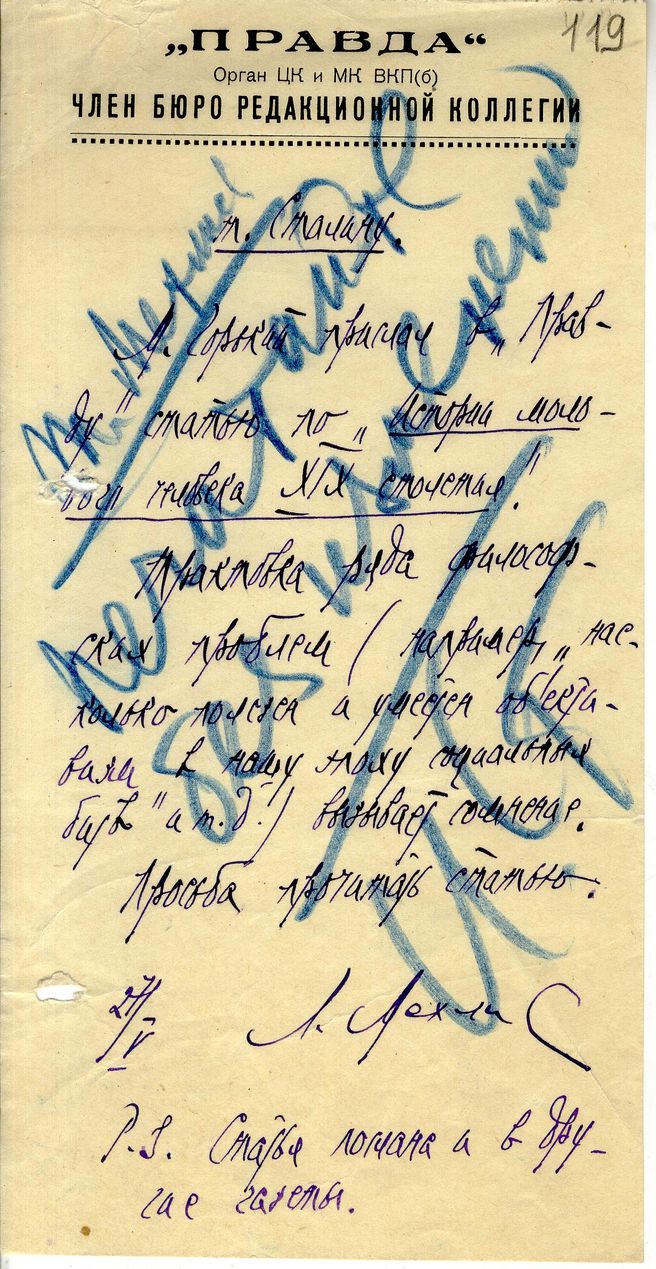 119
„ПРАВДА“
Орган ЦК и МК ВКП(б)
ЧЛЕН БЮРО РЕДАКЦИОННОЙ КОЛЛЕГИИ
т. Сталину.
М. Горький прислал в „Прав-
ду“ статью по „Истории моло-
дого человека XIX столетия“.
Трактовка ряда философ-
ских проблем (например, „нас-
колько полезен и уместен объекти-
визм в нашу эпоху социальных
битв“ и т.д.) вызывает сомнение.
Просьба прочитать статью.
27/V Л. Мехлис
P.S. Статья послана и в дру-
гие газеты.
Печатайте
без изменений